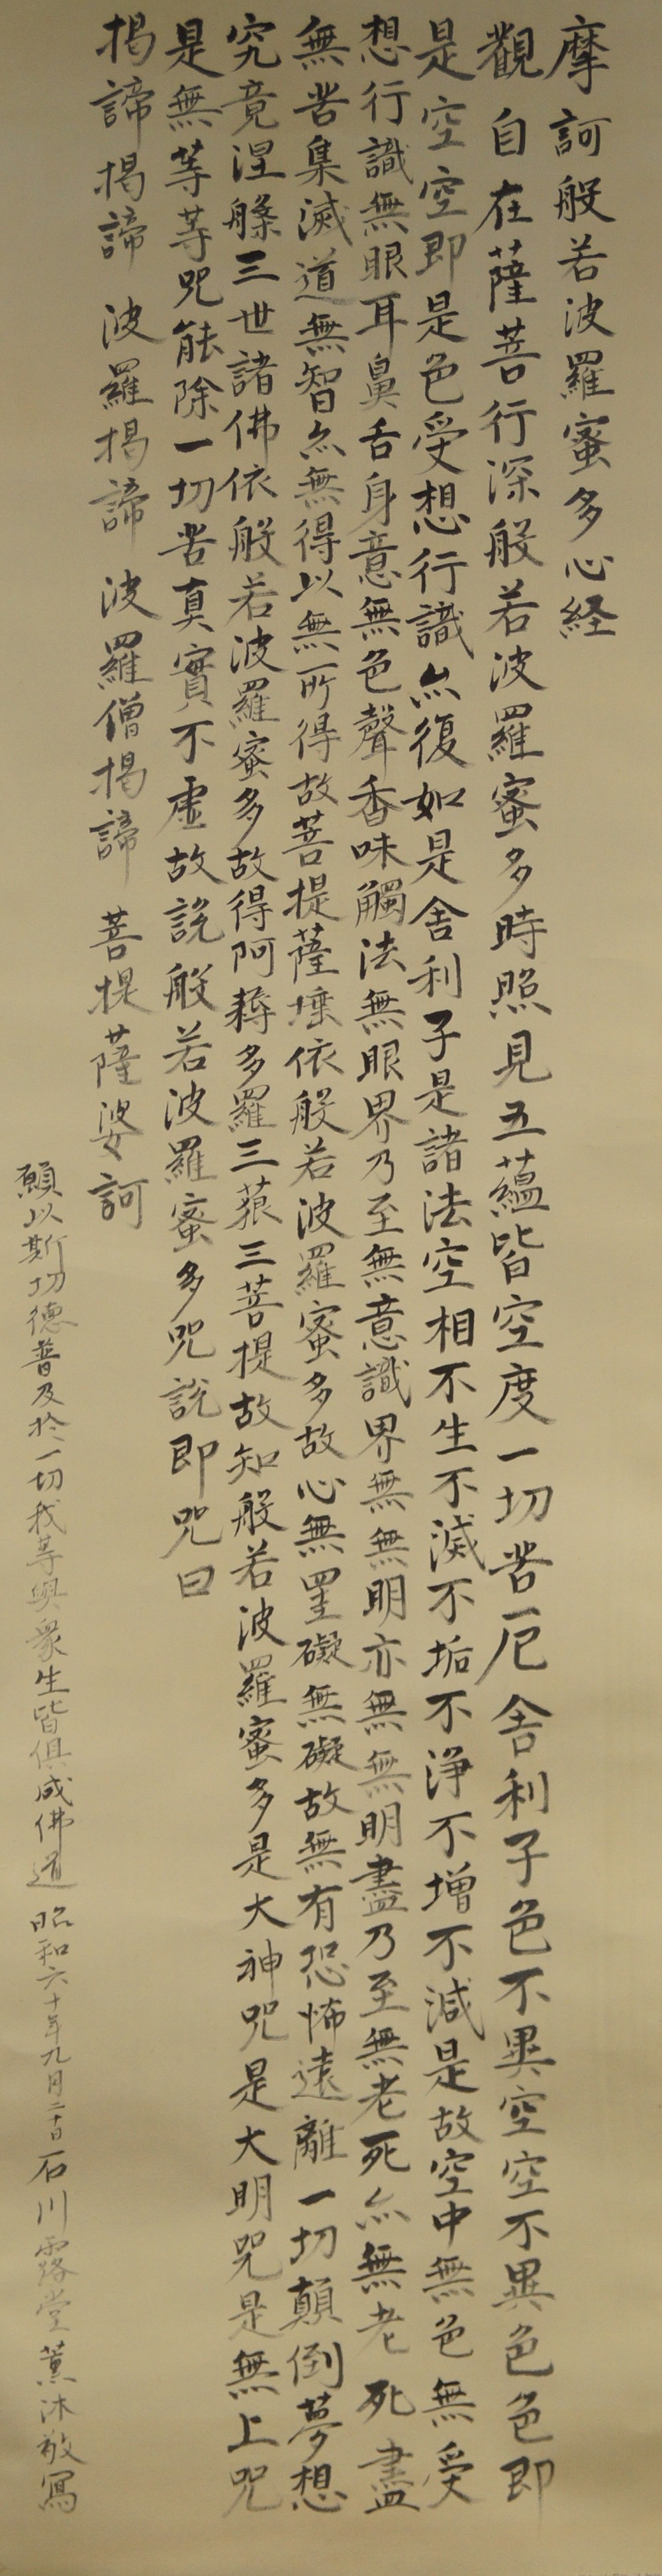 摩訶般若波羅蜜多心経
觀自在薩菩行深般若波羅蜜多時照見五蘊皆空度一切苦厄舎利子色不異空空不異色色即
是空空即是色受想行識亦復如是舎利子是諸法空相不生不滅不垢不浄不增不減是故空中無色無受
想行識無眼耳鼻舌身意無色聲香味觸法無眼界乃至無意識界無無明亦無無明盡乃至無老死亦無老死盡
無苦集滅道無智亦無得以無所得故菩提薩埵依般若波羅蜜多故心無罣礙無礙故無有恐怖遠離一切顛倒夢想
究竟涅槃三世諸佛依般若波羅蜜多故得阿耨多羅三藐三菩提故知般若波羅蜜多是大神咒是大明咒是無上咒
是無等等咒能除一切苦真實不虛故説般若波羅蜜多咒説即咒曰
揭諦揭諦 波羅揭諦 波羅僧揭諦 菩提薩婆訶
願以斯功德普及於一切我等與衆生皆俱成佛道 昭和六十年九月二十日 石川露堂薫沐敬寫